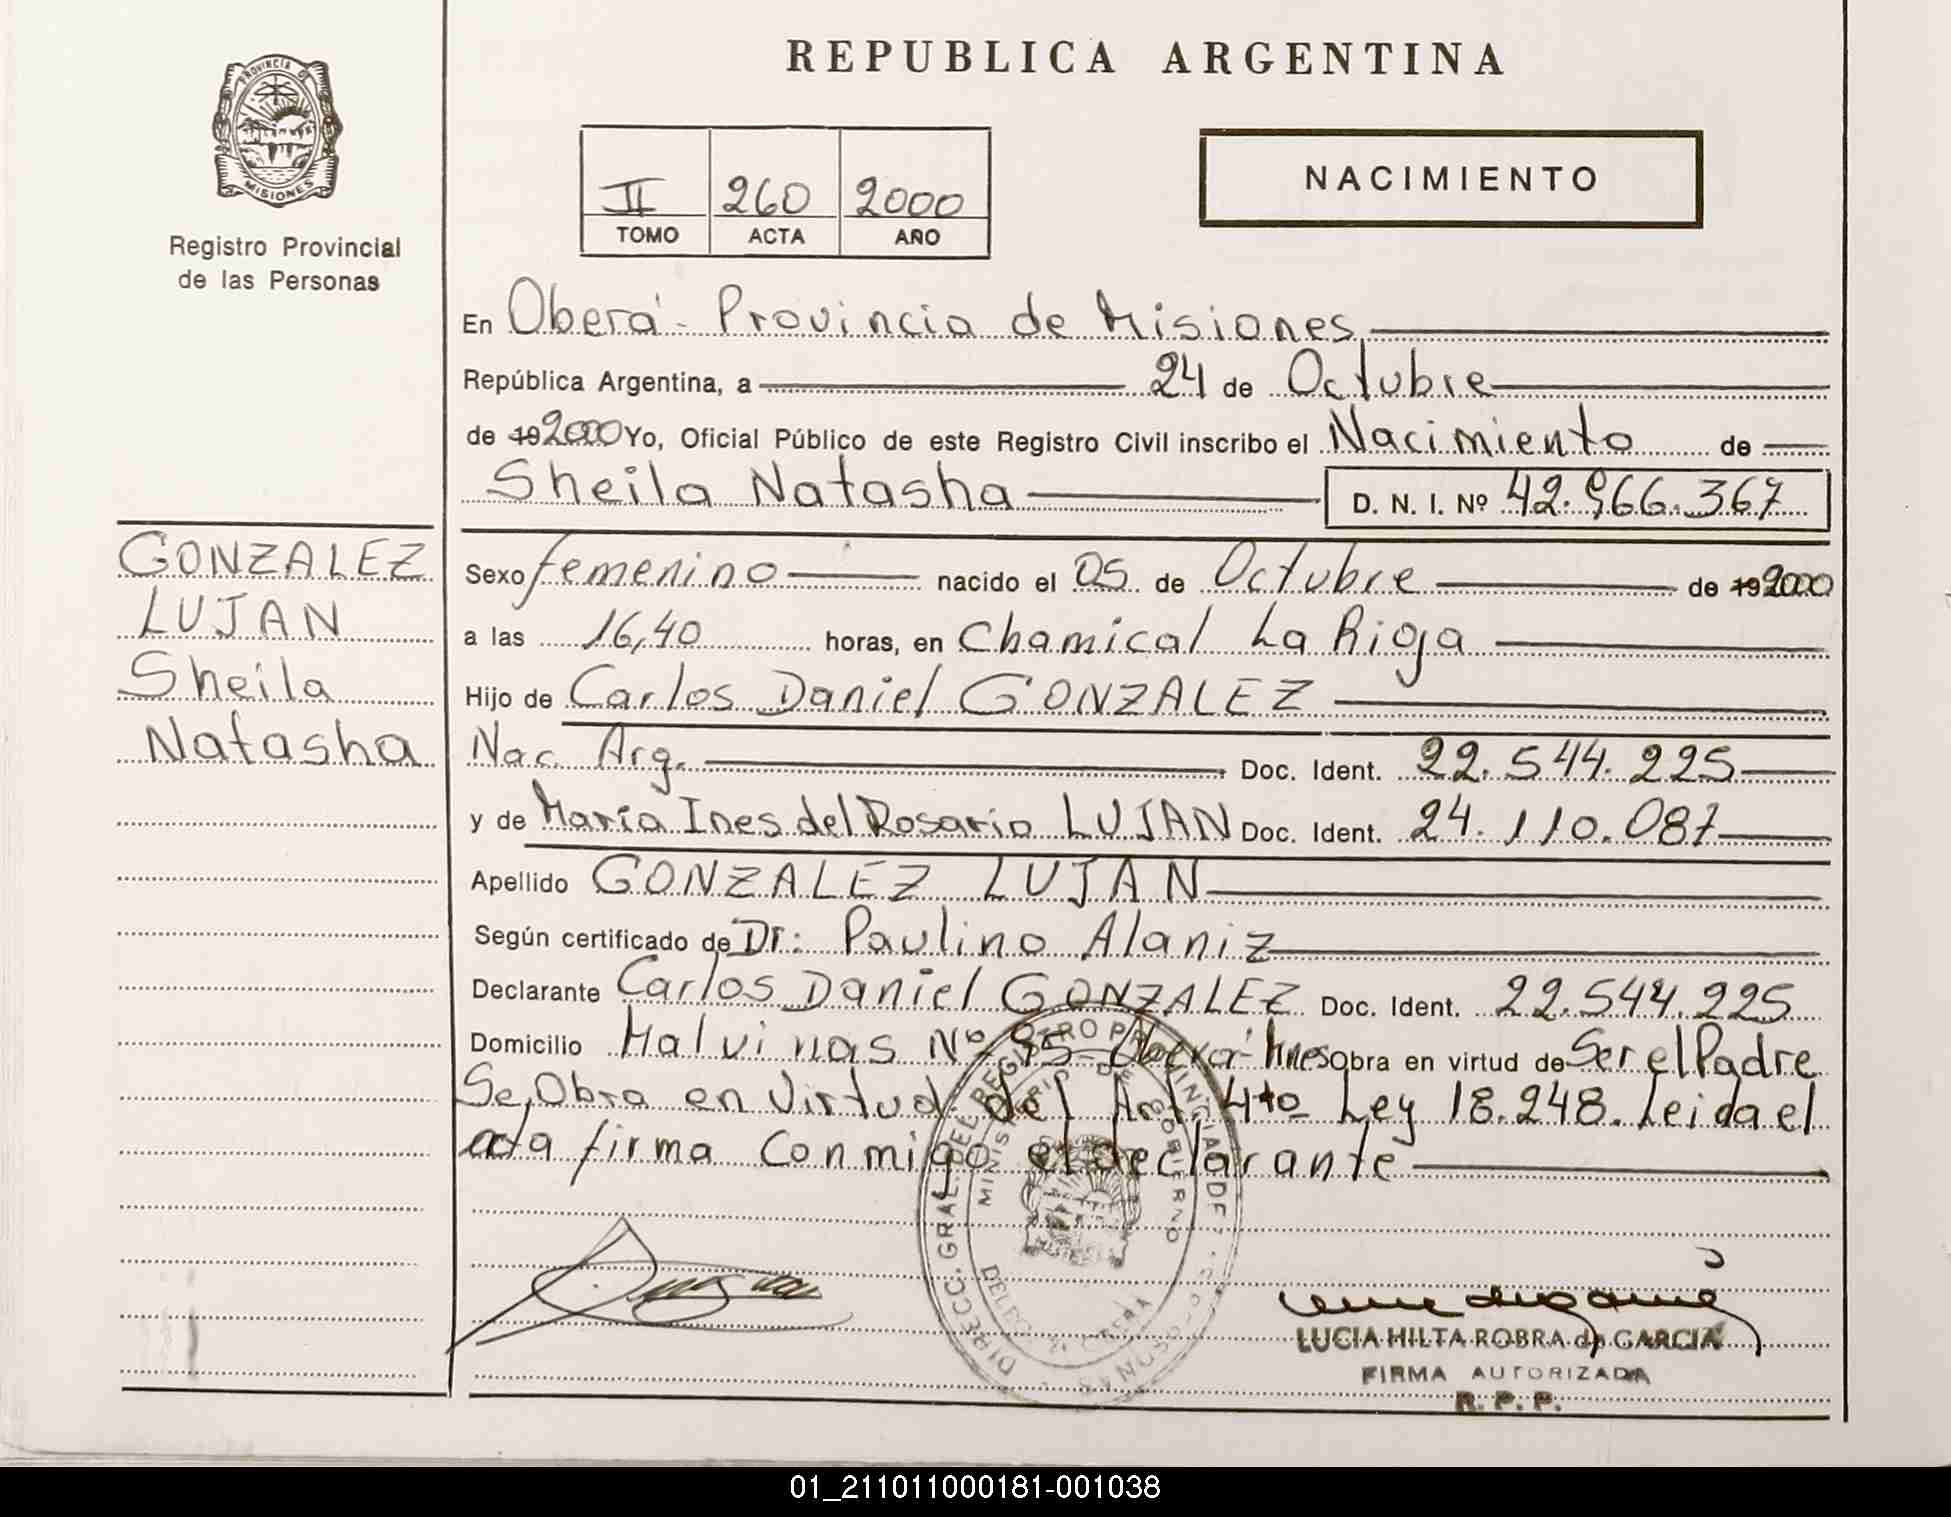 REPUBLICA ARGENTINA
PROVINCIA D
MISIONES
Registro Provincial
de las Personas
II 260 2000
TOMO ACTA AÑO
NACIMIENTO
En Oberá - Provincia de Misiones
República Argentina, a 24 de Octubre
de 19 2000 Yo, Oficial Público de este Registro Civil inscribo el Nacimiento de
Sheila Natasha D. N. I. Nº 42.966.367
GONZALEZ
LUJAN
Sheila
Natasha
Sexo femenino nacido el 05 de Octubre de 19 2000
a las 16,40 horas, en Chamical La Rioja
Hijo de Carlos Daniel GONZALEZ
Nac. Arg. Doc. Ident. 22.544.225
y de María Ines del Rosario LUJAN Doc. Ident. 24.110.087
Apellido GONZALEZ LUJAN
Según certificado de Dr: Paulino Alaniz
Declarante Carlos Daniel GONZALEZ Doc. Ident. 22.544.225
Domicilio Malvinas Nº 95 - Oberá - Mnes obra en virtud de Ser el Padre
Se Obra en Virtud del Art. 4to Ley 18.248. Leida el
acta firma Conmigo el declarante
DIRECC. GRAL. DEL REGISTRO PROVINCIAL DE PERSONAS
MINISTERIO DE GOBIERNO
MISIONES
OBERA
LUCIA HILTA ROBRA de GARCIA
FIRMA AUTORIZADA
R. P. P.
01_211011000181-001038